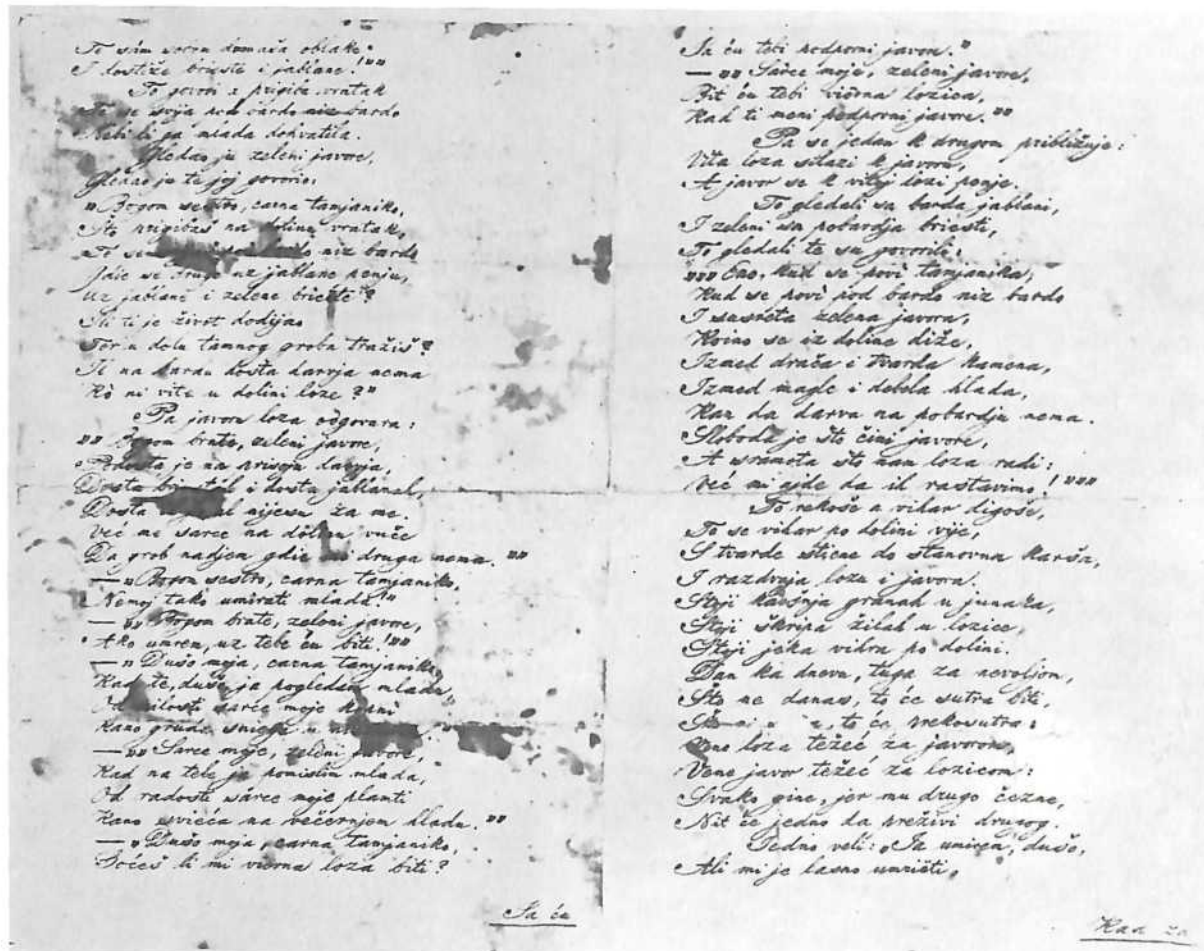 Te sâm socem domaša oblake.
I dostiže brieste i jablane!""
To govori a prigiba vratak
Te se svija pod bardo niz bardo
Nebi li ga mlada dohvatila.
Gledao ju zeleni javore,
Gledao ju te joj govorio:
" Bogom sestro, carna tamjaniko,
Što prigibaš na dolinu vratak,
Te se niz bardo
Gdie se druge uz jablane penju,
Uz jablane i zelene brieste?
Ili ti je život dodijao
Ter u dolu tamnog groba tražiš?
Il na bardu dosta darvja nema
Kô ni vite u dolini loze?"
Pa javoru loza odgovara:
"" Bogom brate, zeleni javore,
Podosta je na prisoju darvja,
Dosta briestâl i dosta jablanah,
Dosta nijesu za me.
Već me sarce na dôlinu vuče
Da grob nadjem gdie mi druga nema.""
— " Bogom sestro, carna tamjaniko,
Nemoj tako umirati mlada!"
— "" Bogom brate, zeleni javore,
Ako umrem, uz tebe ću biti!""
— " Dušo moja, carna tamjaniko,
Kad te, dušo, ja pogledam mladu,
Od milosti sarce moje kopni
Kano gruda sniega u
— "" Sarce moje, zeleni javore,
Kad na tebe ja pomislim mlada,
Od radosti sarce moje planti
Kano svieća na večernjem hladu.""
— " Dušo moja, carna tamjaniko,
Hoćeš li mi vierna loza biti?
Ja ću
Ja ću tebi podporni javore."
— "" Sarce moje, zeleni javore,
Bit ću tebi vierna lozica,
Kad ti meni podporni javore.""
Pa se jedan k drugom približuje:
Vita loza silazi k javoru,
A javor se k vitoj lozi penje.
To gledali sa barda jablani,
I zeleni sa pobardja briesti,
To gledali te su govorili:
""" Eno, kud se povi tamjanika,
Kud se povi pod bardo niz bardo
I susreta zelena javora,
Koino se iz doline diže,
Izmed drača i tvarda kamena,
Izmed magle i debela hlada,
Kan da darva na pobardju nema.
Sloboda je što čini javore,
A sramota što nam loza radi:
Već mi ajde da ih rastavimo!"""
To rekoše a vihar digoše,
Te se vihar po dolini vije,
S tvarde stiene do stanovna karša,
I razdvaja lozu i javora.
Stoji karšnja granah u junaka,
Stoji škripa žilah u lozice,
Stoji jeka vihra po dolini.
Dan ka dnevu, tuga za nevoljom,
Što ne danas, to će sutra biti,
to će prekosutra:
Vene loza težeć za javorom,
Vene javor težeć za lozicom:
Svako gine, jer mu drugo čezne,
Nit će jedno da preživi drugog.
Jedno veli: "Ja umirem, dušo,
Ali mi je lasno umrieti,
Kad za